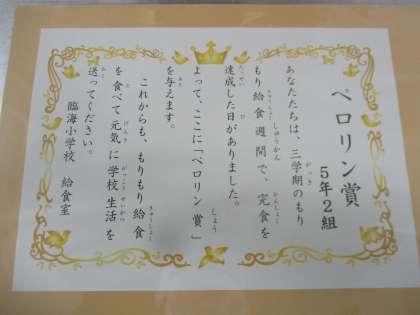 ペロリン賞
5年2組
あなたたちは、三学期のもり
もり給食週間で、完食を
達成した日がありました。
よって、ここに「ペロリン賞」
を与えます。
これからも、もりもり給食
を食べて元気に学校生活を
送ってください。
臨海小学校 給食室